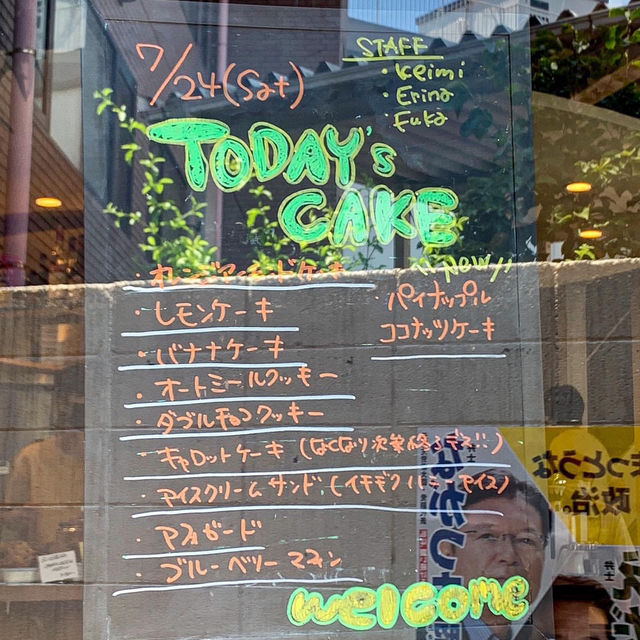 7/24(Sat)
STAFF
・Keimi
・Erina
・Fuka
TODAY's
CAKE
・オレンジアーモンドケーキ
"new"
・レモンケーキ
・パイナップル
ココナッツケーキ
・バナナケーキ
・オートミールクッキー
・ダブルチョコクッキー
・キャロットケーキ (なくなり次第終了デス!!)
・アイスクリームサンド
・アフォガード
・ブルーベリーマフィン
welcome
政治。